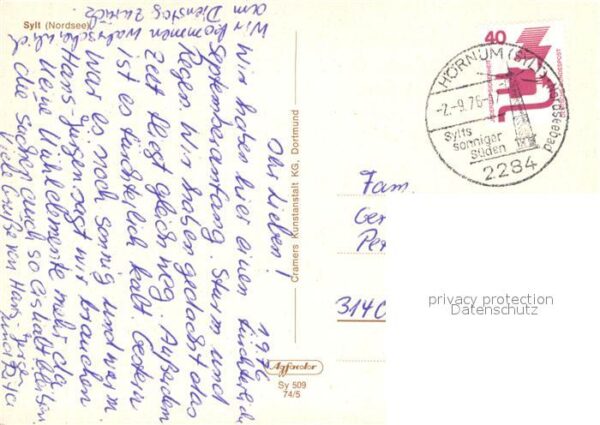 Sylt (Nordsee)
1976
Ihr Lieben!
Wir haben hier einen fürchterlichen
Septemberanfang. Sturm und
Regen. Wir haben gedacht das
Zelt fliegt gleich weg. Außerdem
ist es fürchterlich kalt. Gestern
war es noch sonnig und warm
Hans-Jürgen sagt wir brauchen
keine Kühlelemente mehr da
die Sachen auch so eiskalt bleiben.
Viele Grüße von Hans-Jürgen
und Rita
Wir kommen wahrscheinlich
am Dienstag zurück.
Cramers Kunstanstalt KG, Dortmund
Agfacolor
Sy 509
74/5
40
DEUTSCHE BUNDESPOST
HÖRNUM (SYLT)
Nordseebad
-2.-9.76-
Sylts
sonniger
Süden
2284
Fam.
Ger
Pe
314
privacy protection
Datenschutz